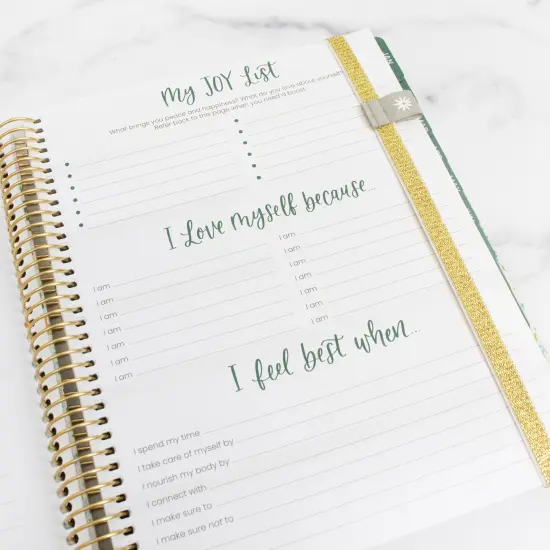 My JOY List
What brings you peace and happiness? What do you love about yourself?
Refer back to this page when you need a boost.
I Love myself because...
I am
I am
I am
I am
I am
I am
I am
I am
I am
I am
I am
I am
I am
I am
I feel best when...
I spend my time
I take care of myself by
I nourish my body by
I connect with
I make sure to
I make sure not to